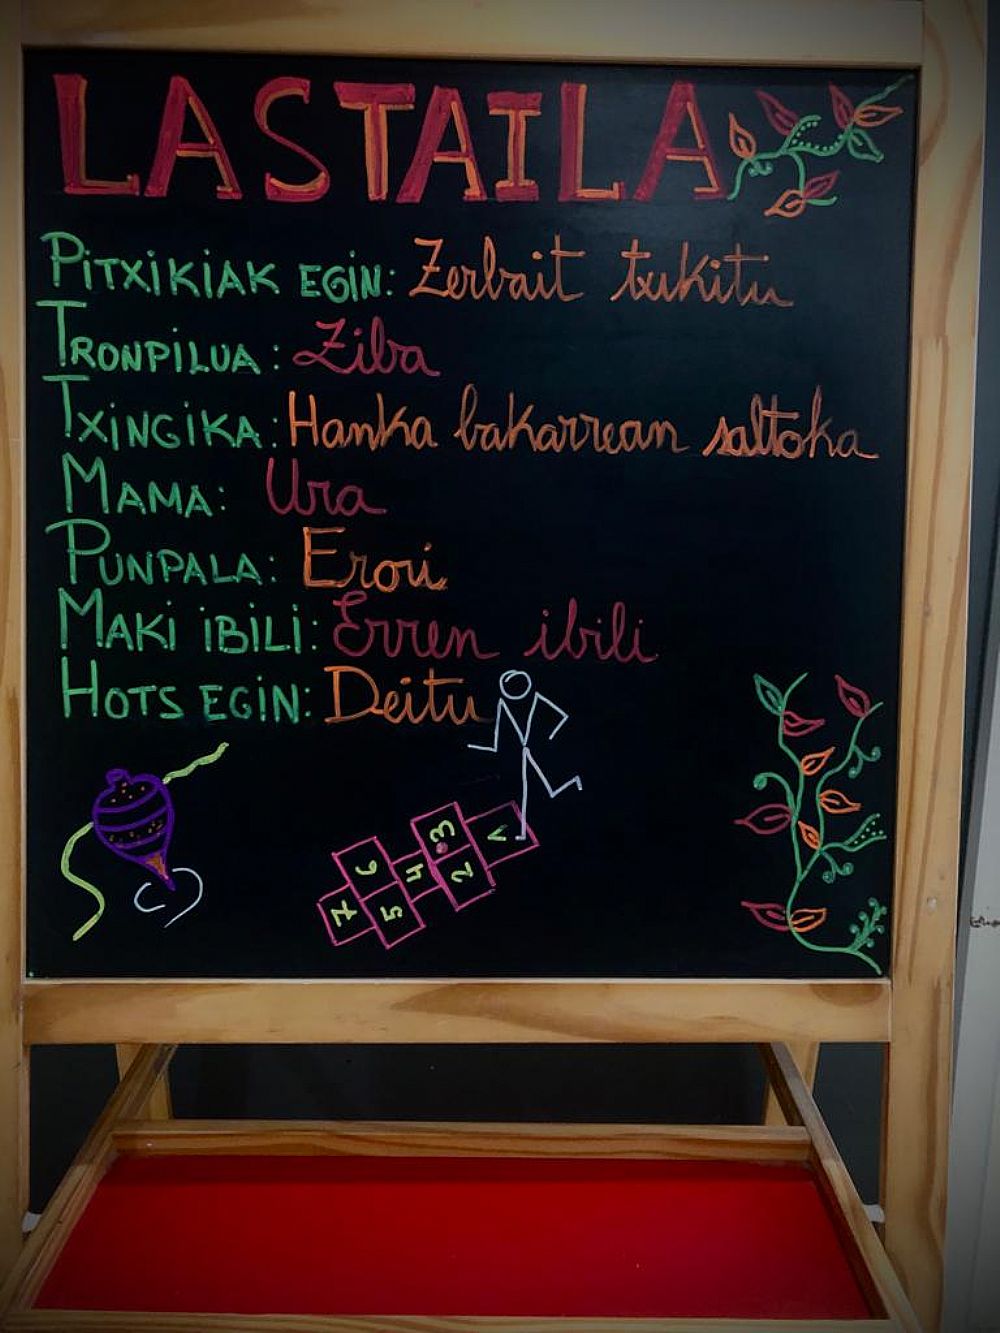 LASTAILA
PITXIKIAK EGIN: Zerbait txikitu
TRONPILUA: Ziba
TXINGIKA: Hanka bakarrean saltoka
MAMA: Ura
PUNPALA: Erori
MAKI iBiLi: Erren ibili
HOTS EGiN: Deitu
1
3
2
4
6
5
7